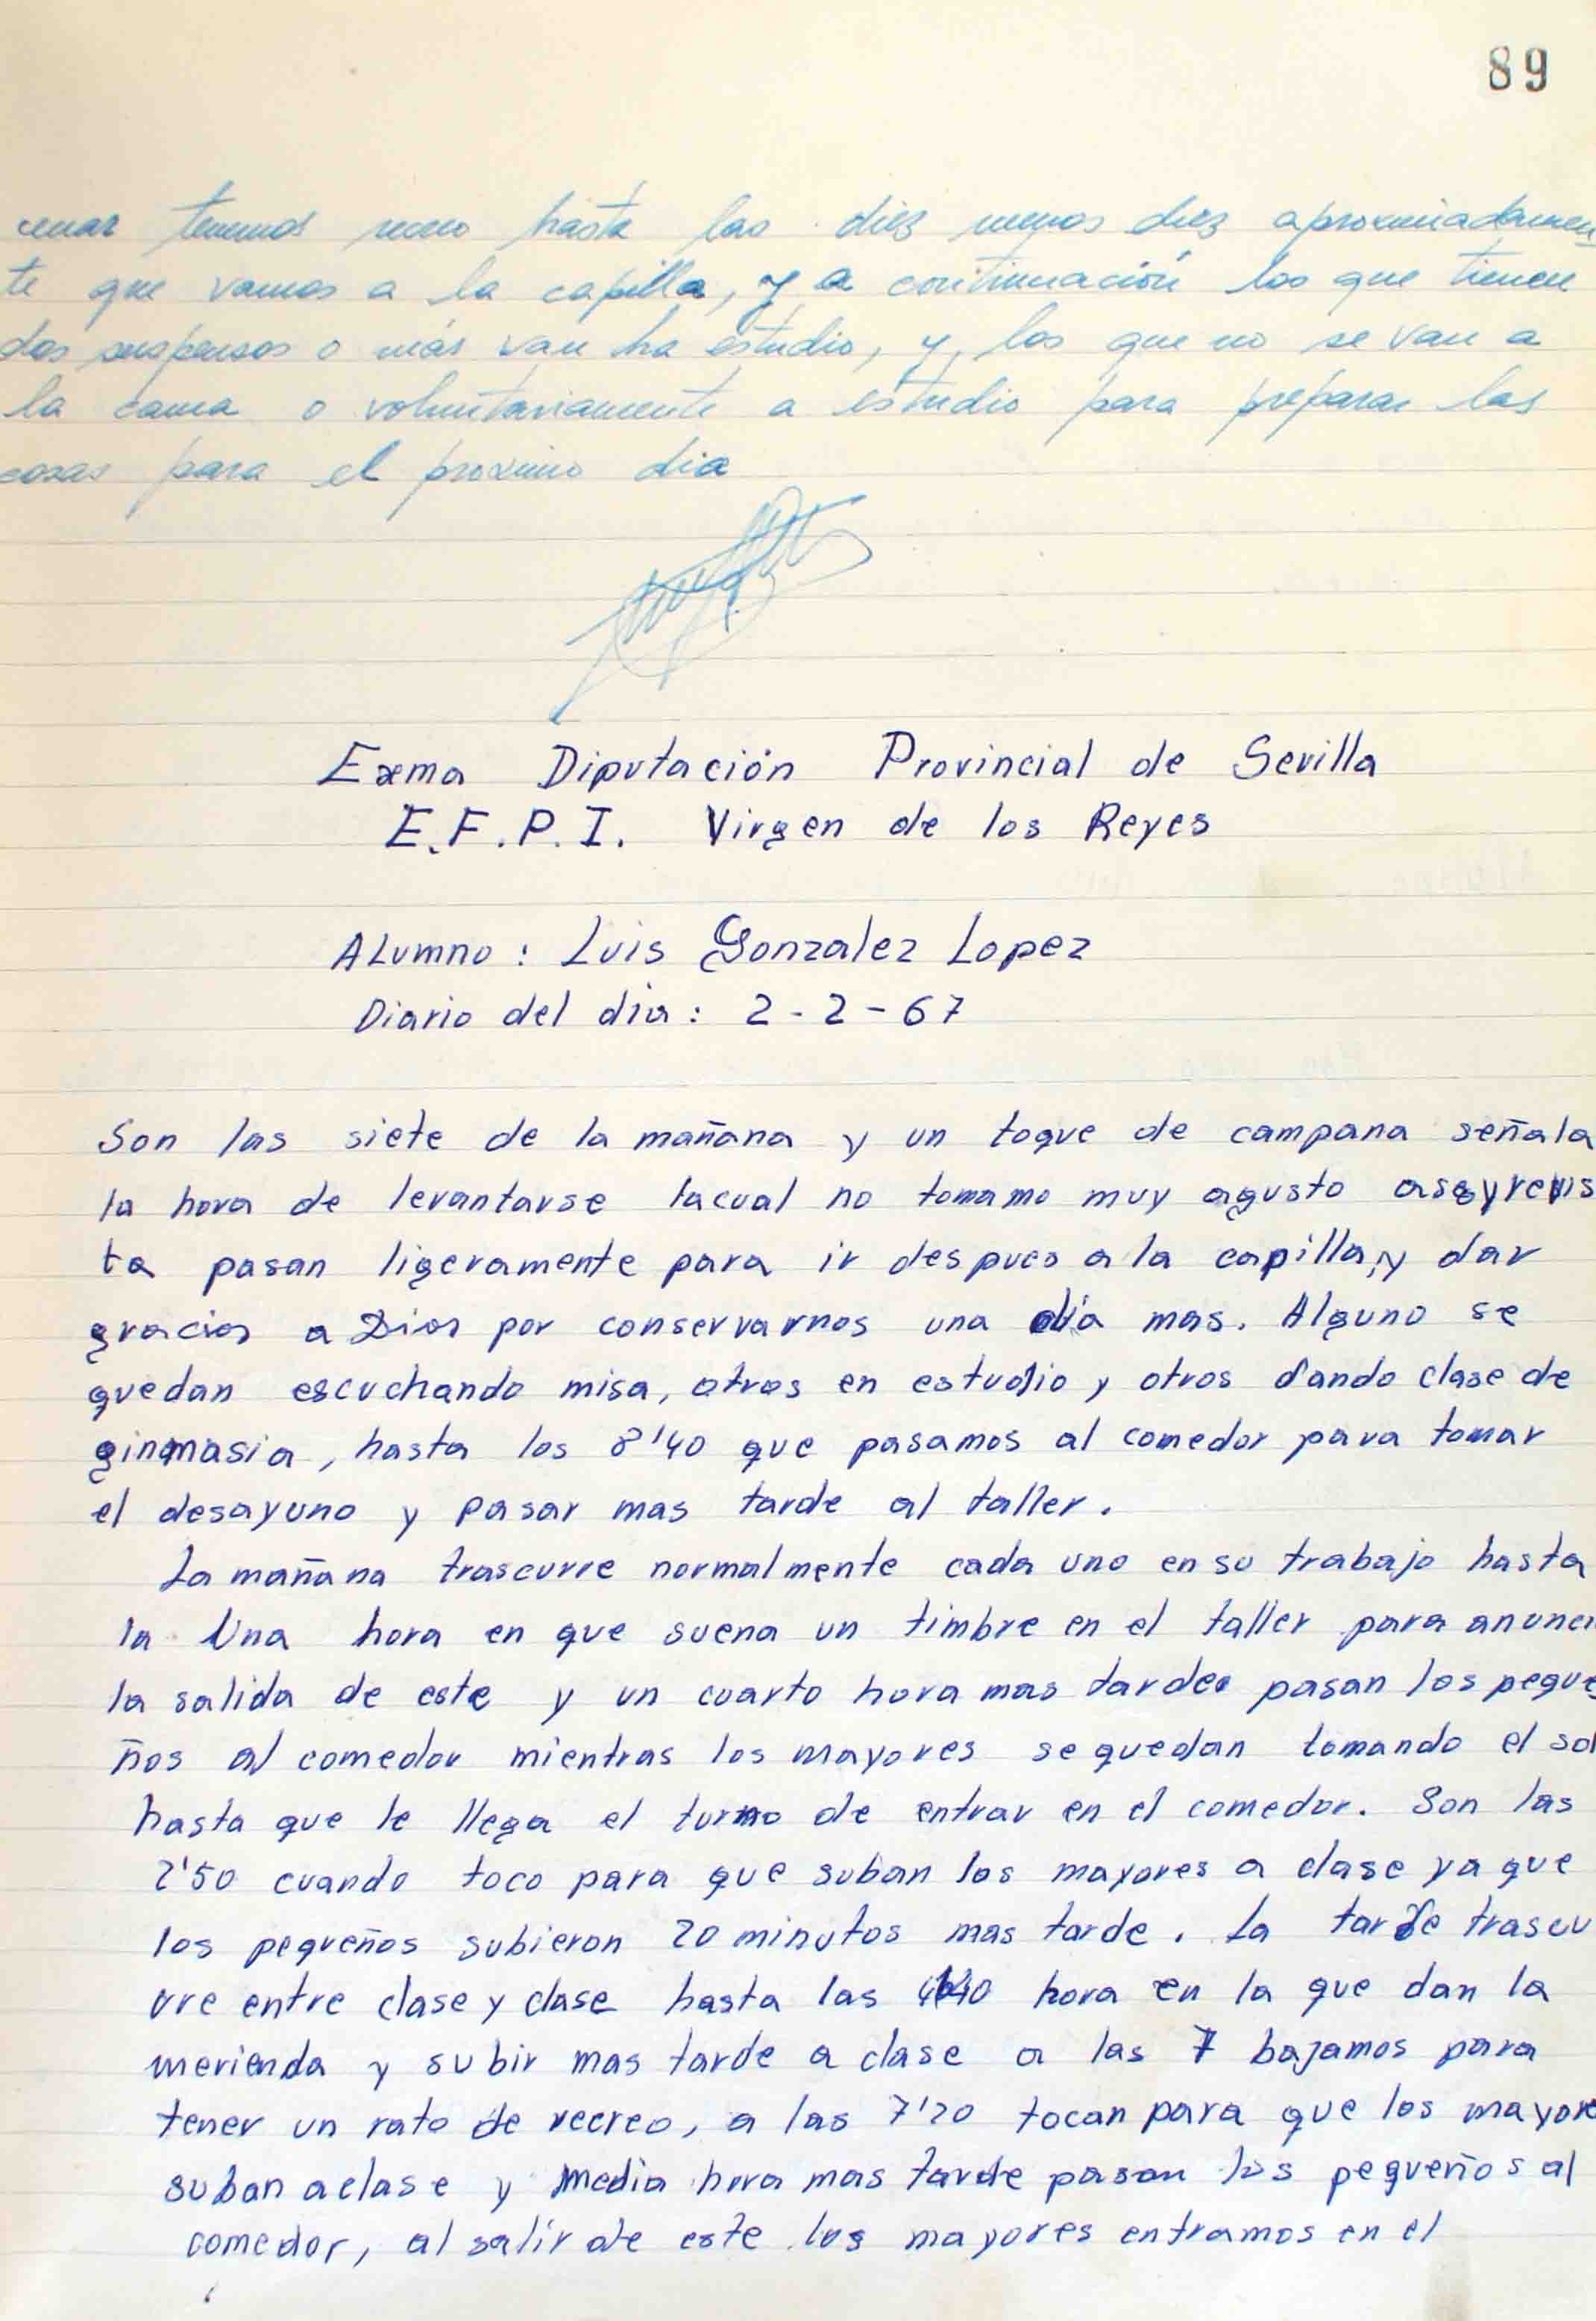 89
cenar tenemos recreo hasta las diez menos diez aproximadamen
te que vamos a la capilla, y a continuación los que tienen
dos suspensos o más van ha estudio, y, los que no se van a
la cama o voluntariamente a estudio para preparar las
cosas para el proximo dia
Exma Diputación Provincial de Sevilla
E.F.P.I. Virgen de los Reyes
Alumno: Luis Gonzalez Lopez
Diario del dia: 2-2-67
Son las siete de la mañana y un toque de campana señala
la hora de levantarse lacual no tomamo muy agusto aseoyrevis
ta pasan ligeramente para ir despues a la capilla, y dar
gracias a Dios por conservarnos una día mas. Alguno se
quedan escuchando misa, otros en estudio y otros dando clase de
ginmasia, hasta los 8'40 que pasamos al comedor para tomar
el desayuno y pasar mas tarde al taller.
La mañana trascurre normalmente cada uno en su trabajo hasta
la Una hora en que suena un timbre en el taller para anunci
la salida de este y un cuarto hora mas tarde pasan los peque
ños al comedor mientras los mayores se quedan tomando el sol
hasta que le llega el turno de entrar en el comedor. Son las
2'50 cuando toco para que suban los mayores a clase ya que
los pequeños subieron 20 minutos mas tarde. La tarde trascu
rre entre clase y clase hasta las hora en la que dan la
merienda y subir mas tarde a clase a las 7 bajamos para
tener un rato de recreo, a las 7'20 tocan para que los mayore
suban aclase y media hora mas tarde pasan los pequeños al
comedor, al salir de este los mayores entramos en el